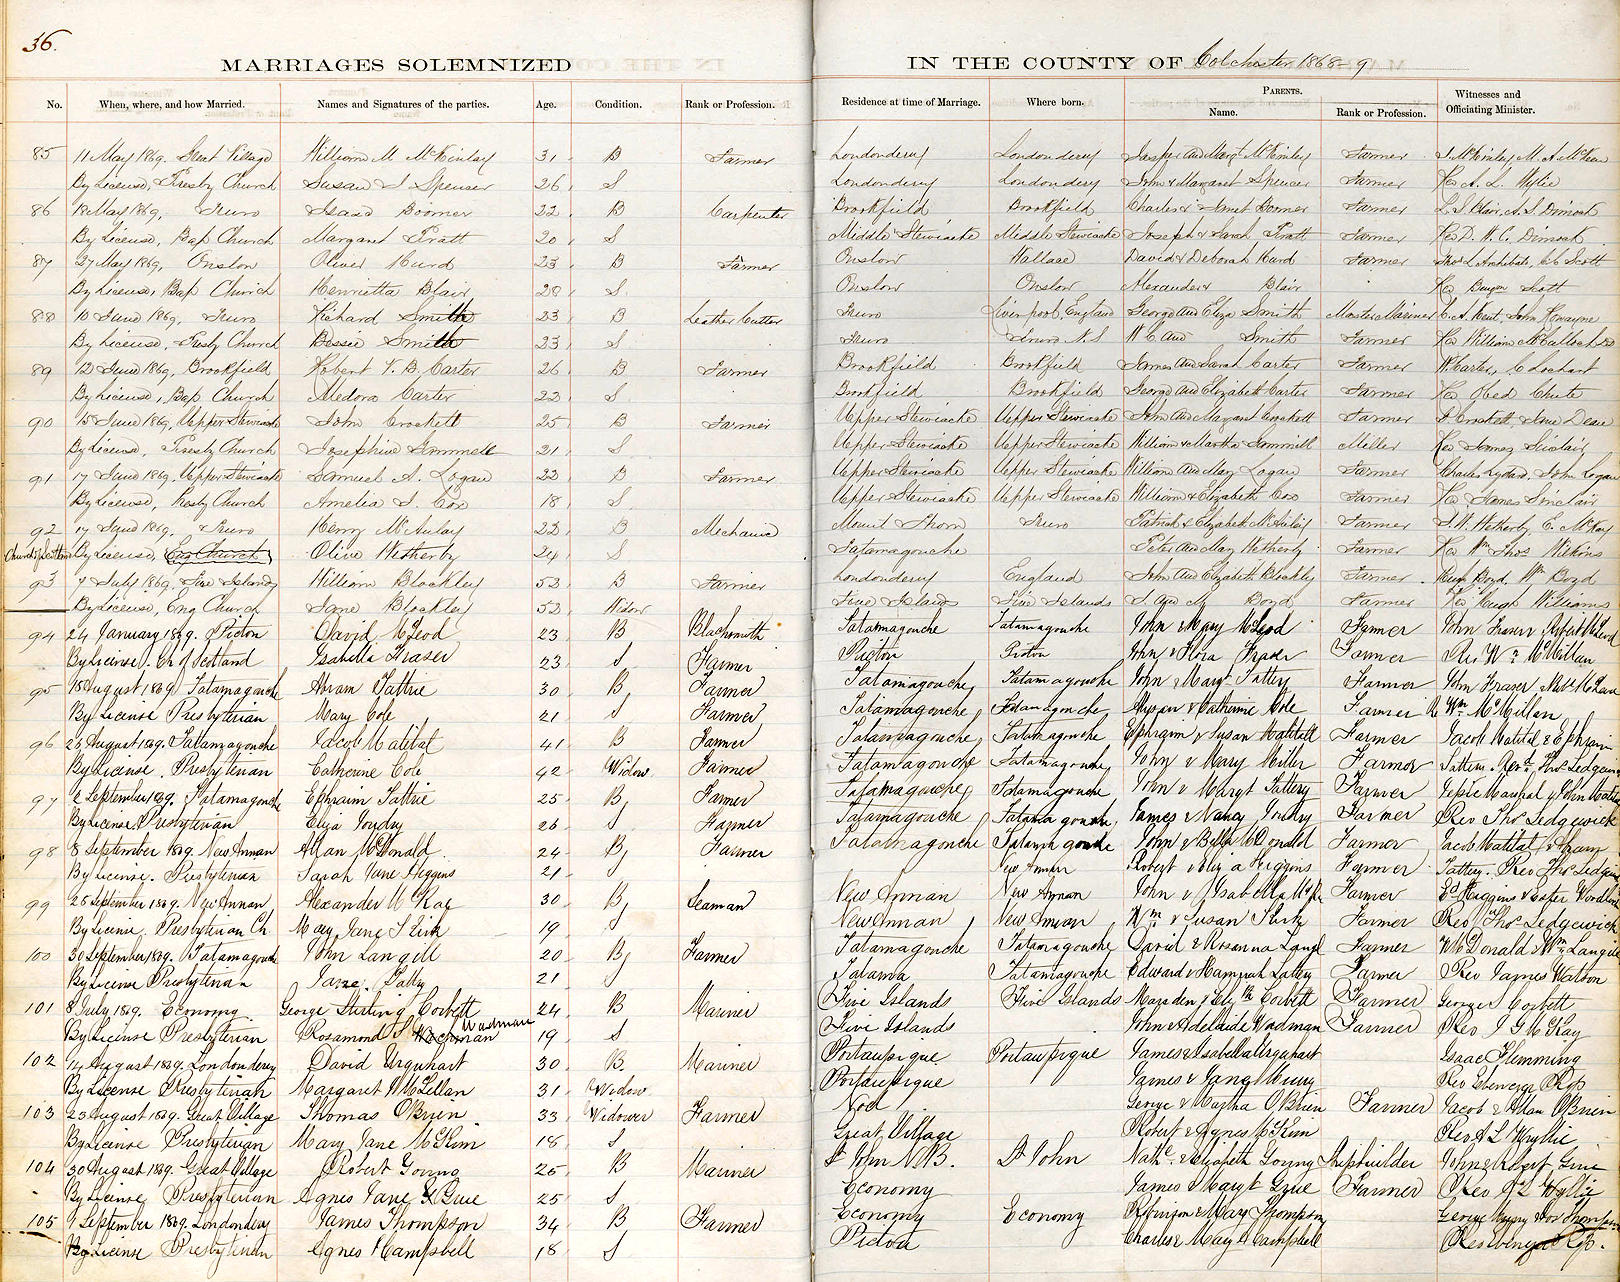 36.
MARRIAGES SOLEMNIZED IN THE COUNTY OF Colchester 1868-9
No. When, where, and how Married. Names and Signatures of the parties. Age. Condition. Rank or Profession. Residence at time of Marriage. Where born. PARENTS. Name. Rank or Profession. Witnesses and Officiating Minister.
85 11 May 1869, Great Village William M. McKinlay 31 B Farmer Londonderry Londonderry Jasper and Margt McKinley Farmer
By License, Presby Church Susan J Spencer 26 S Londonderry Londonderry John & Margaret Spencer Farmer Rev A. L. Wylie
86 18 May 1869, Truro Isaac Boomer 22 B Carpenter Brookfield Brookfield Charles & Janet Boomer Farmer
By License, Bap Church Margaret Pratt 20 S Middle Stewiacke Middle Stewiacke Joseph & Sarah Pratt Farmer Rev D. W. C. Dimock
87 27 May 1869, Onslow Oliver Hurd 23 B Farmer Onslow Wallace David & Deborah Hurd Farmer
By License, Bap Church Henrietta Blair 28 S Onslow Onslow Alexander Blair Rev Scott
88 10 June 1869, Truro Richard Smith 23 B Leather Cutter Truro Liverpool, England George and Eliza Smith Master Mariner
By License, Presby Church Bessie Smith 23 S Truro Truro N.S W C and Smith Farmer Rev William McCulloch
89 12 June 1869, Brookfield Robert V. B. Carter 26 B Farmer Brookfield Brookfield James and Sarah Carter Farmer W Carter, C Lockhart
By License, Bap Church Medora Carter 22 S Brookfield Brookfield George and Elizabeth Carter Farmer Rev Obed Chute
90 15 June 1869, Upper Stewiacke John Crockett 25 B Farmer Upper Stewiacke Upper Stewiacke John and Margaret Crockett Farmer Crockett, Jane Dean
By License, Presby Church Josephine Gammell 21 S Upper Stewiacke Upper Stewiacke William & Martha Gammell Miller Rev James Sinclair
91 17 June 1869, Upper Stewiacke Samuel A. Logan 22 B Farmer Upper Stewiacke Upper Stewiacke William and Mary Logan Farmer Charles Lydiard, John Logan
By License, Presby Church Amelia J. Cox 18 S Upper Stewiacke Upper Stewiacke William & Elizabeth Cox Farmer Rev James Sinclair
92 17 June 1869, Truro Henry McAulay 22 B Mechanic Mount Thom Truro Patrick & Elizabeth McAulay Farmer J. W. Wetherby, C. McKay
Church of Scotland By License, Eng Church Olive Wetherby 24 S Tatamagouche Peter and Mary Wetherby Farmer Rev Wm Thos Wilkins
93 7 July 1869. Five Islands William Blackley 52 B Farmer Londonderry England John and Elizabeth Blackley Farmer Hugh Boyd, Wm Boyd
By License, Eng Church Jane Blackley 52 Widow Five Islands Five Islands J. and Boyd Farmer Rev Hugh Williams
94 24 January 1869. Pictou David McLeod 23 B Blacksmith Tatamagouche Tatamagouche John & Mary McLeod Farmer John Fraser & Robert McLeod
By License. Ch of Scotland Isabella Fraser 23 S Farmer Pictou Pictou John & Flora Fraser Farmer Rev Wm McMillan
95 18 August 1869 Tatamagouche Abram Tattrie 30 B Farmer Tatamagouche Tatamagouche John & Margt Tattry Farmer John Fraser
By License Presbyterian Mary Cole 21 S Farmer Tatamagouche Tatamagouche & Catherine Cole Farmer Rev Wm McMillan
96 23 August 1869. Tatamagouche Jacob Matitat 41 B Farmer Tatamagouche Tatamagouche Ephraim & Susan Matitatt Farmer Jacob Matital & Ephraim
By License. Presbyterian Catherine Cole 42 Widow Farmer Tatamagouche Tatamagouche John & Mary Miller Farmer Tattrie. Revd. Thos Ledgewick
97 2 September 1869. Tatamagouche Ephraim Tattrie 25 B Farmer Tatamagouche Tatamagouche John & Margt Tattery Farmer
By License. Presbyterian Eliza Joudry 26 S Farmer Tatamagouche Tatamagouche James & Nancy Joudry Farmer Rev Thos Ledgewick
98 8 September 1869. New Annan Allan McDonald 24 B Farmer Tatamagouche Tatamagouche John & Bella McDonald Farmer Jacob Matital & Abram
By License. Presbyterian Sarah Jane Higgins 21 S New Annan Robert & Eliza Higgins Farmer Tattery. Rev Thos Ledgewick
99 25 September 1869. New Annan Alexander McKay 30 B Seaman New Annan New Annan John & Isabella McKay Farmer Ed Higgins
By License. Presbyterian Ch Mary Jane Shirk 19 S New Annan New Annan Wm & Susan Shirk Farmer Rev Thos Ledgewick
100 30 September 1869. Tatamagouche John Langill 20 B Farmer Tatamagouche Tatamagouche David & Rosanna Langl Farmer W McDonald & Wm Langill
By License Presbyterian Jane Tatty 21 S Tatama Tatamagouche Edward & Hannah Tattry Farmer Rev James Watson
101 8 July 1869. Economy George Sterling Corbett 24 B Mariner Five Islands Five Islands Marsden & Corbett Farmer George Corbett
By License Presbyterian Rosamond S Wadman 19 S Five Islands John & Adelaide Wadman Farmer Rev J G McKay
102 14 August 1869. Londonderry David Urquhart 30 B Mariner Portaupique Portaupique James & Isabella Urquhart Isaac Flemming
By License Presbyterian Margaret McLellan 31 Widow Portaupique James & Jane Rev Ebenezer
103 23 August 1869. Great Village Thomas OBrien 33 Widower Farmer Noel George & Martha OBrien Farmer Jacob & Adam OBrien
By License Presbyterian Mary Jane McKim 18 S Great Village Robert & Agnes McKim Rev A L Wyllie
104 30 August 1869. Great Village Robert Young 25 B Mariner St John N.B. St John Nathl & Elizabeth Young Shipbuilder John & Robert Grue
By License Presbyterian Agnes Jane Grue 25 S Economy James & Margt Grue Farmer Rev A L Wyllie
105 9 September 1869. Londonderry James Thompson 34 B Farmer Economy Economy Robinson & Mary Thompson George
By License Presbyterian Agnes Campbell 18 S Pictou Charles & Mary Campbell Rev Ebenezer